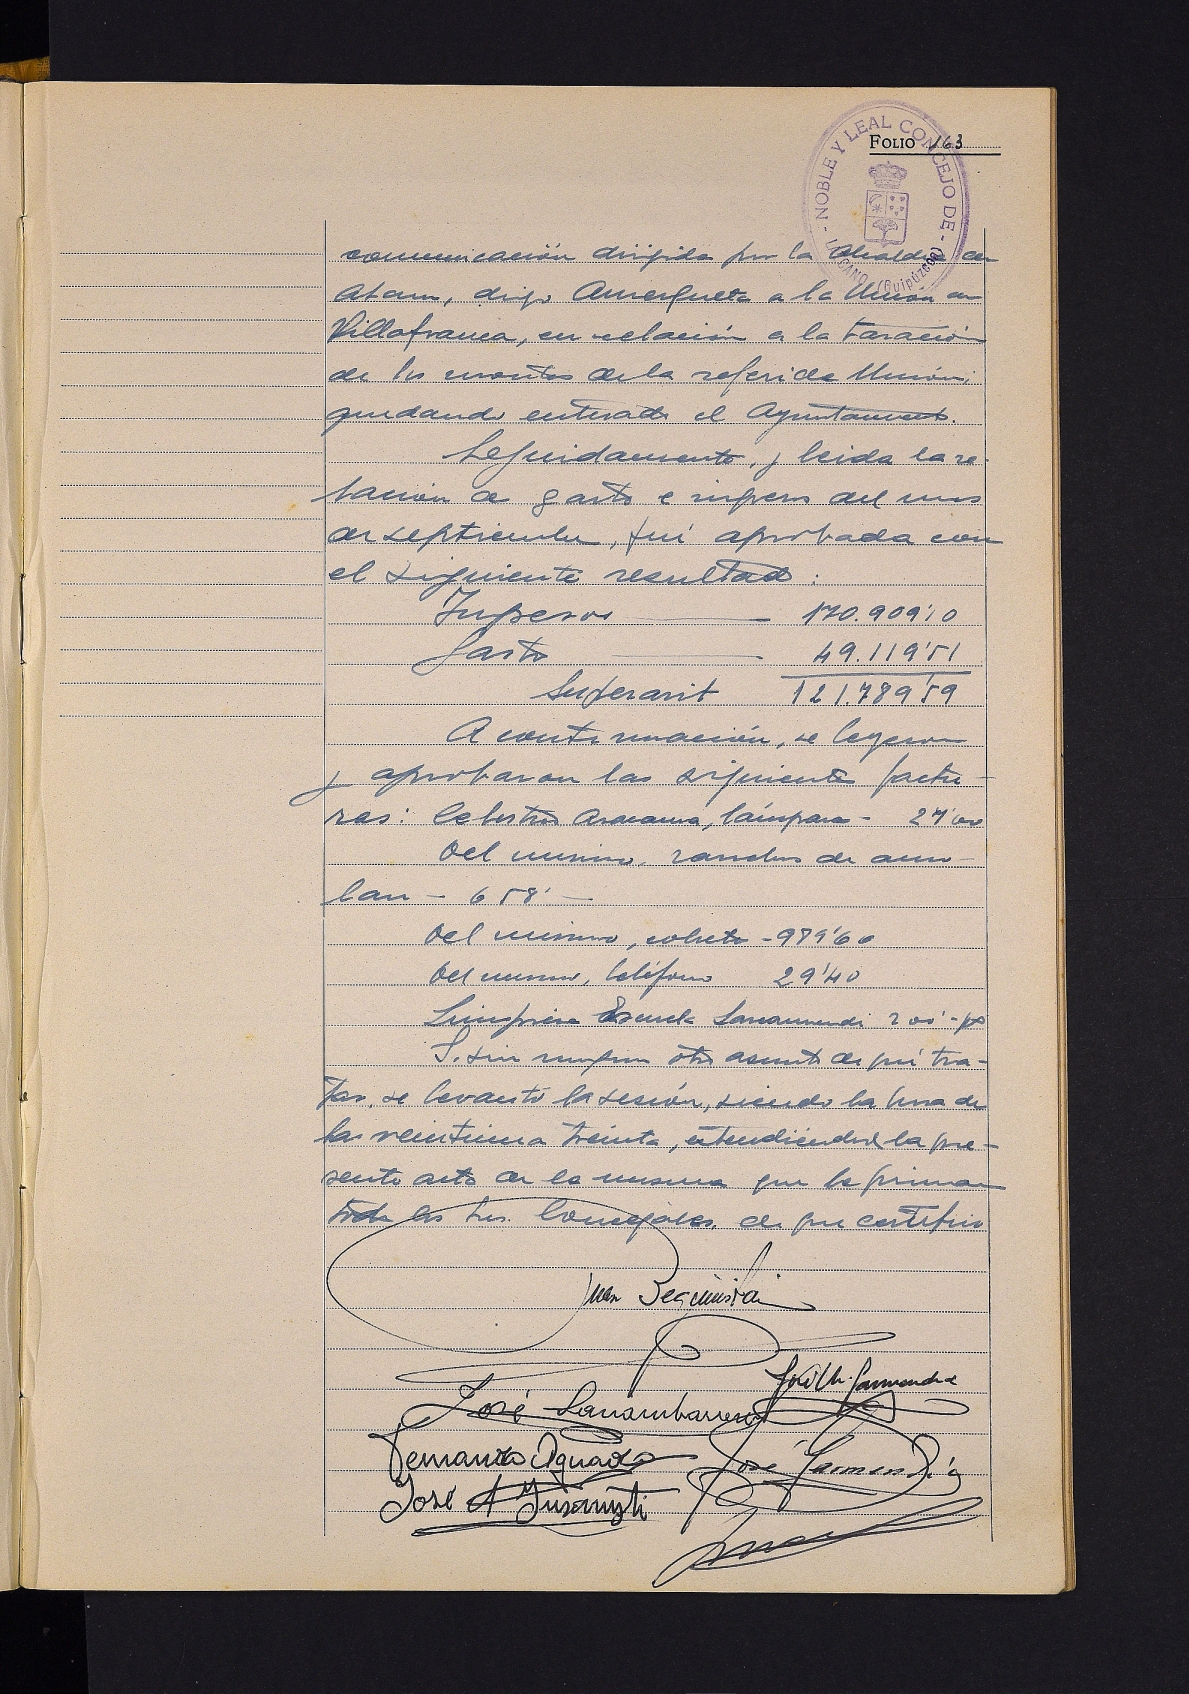 FOLIO 163
- NOBLE Y LEAL CONCEJO DE - LAZCANO (Guipúzcoa)
comunicación dirigida por la Alcaldia de
Ataun, digo Amezqueta a la Union de
Villafranca, en relación a la tasación
de los montes de la referida Unión;
quedando enterado el Ayuntamiento.
Seguidamente, y leida la re-
lación de gastos e ingresos del mes
de septiembre, fué aprobada con
el siguiente resultado:
Ingresos 170.909'10
Gastos 49.119'51
Superavit 121.789'59
A continuación, se leyeron
y aprobaron las siguientes factu-
ras: Aracama, lámpara - 27'00
Del mismo,
lan - 658' -
Del mismo, cohetes - 979'60
Del mismo, teléfono 29'40
Limpieza Escuela Lanamendi
Y sin ningun otro asunto de qué tra-
tar, se levantó la sesión, siendo la hora de
las veintiuna treinta, extendiendose la pre-
sente acta de la misma que la firman
todos los Sres. Concejales, de que certifico
Juan Beguiristain
José M. Garmendia
José
Fernando Aguado
José Garmendia
José A. Insausti